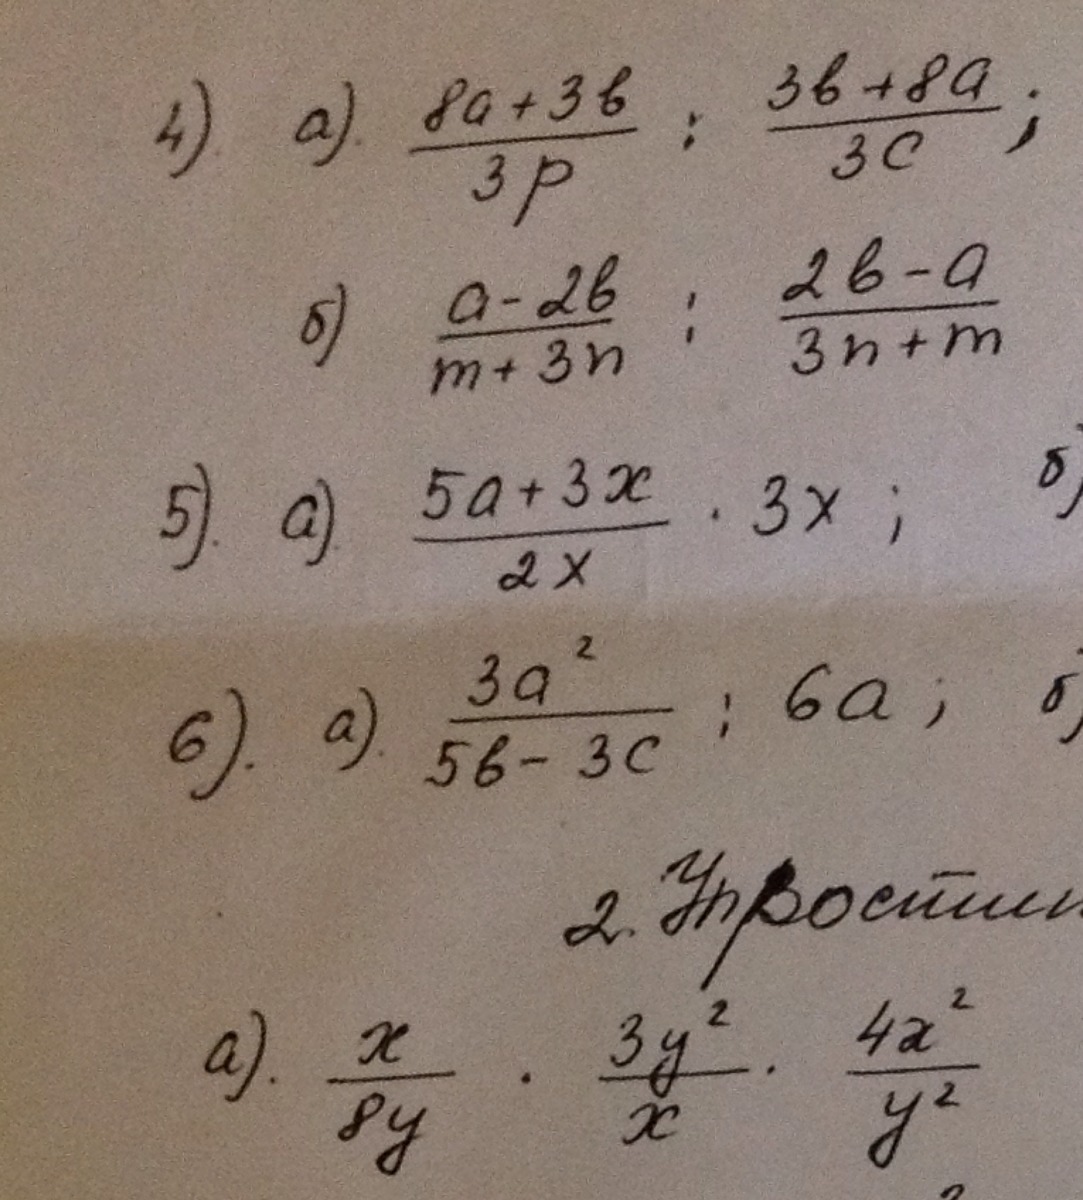 4). а). (8a + 3b)/(3p) : (3b + 8a)/(3c);
б) (a - 2b)/(m + 3n) : (2b - a)/(3n + m)
5). а). (5a + 3x)/(2x) · 3x; б)
6). а). (3a²)/(5b - 3c) : 6a; б)
2. Упрости
а). x/(8y) · (3y²)/x · (4x²)/(y²)